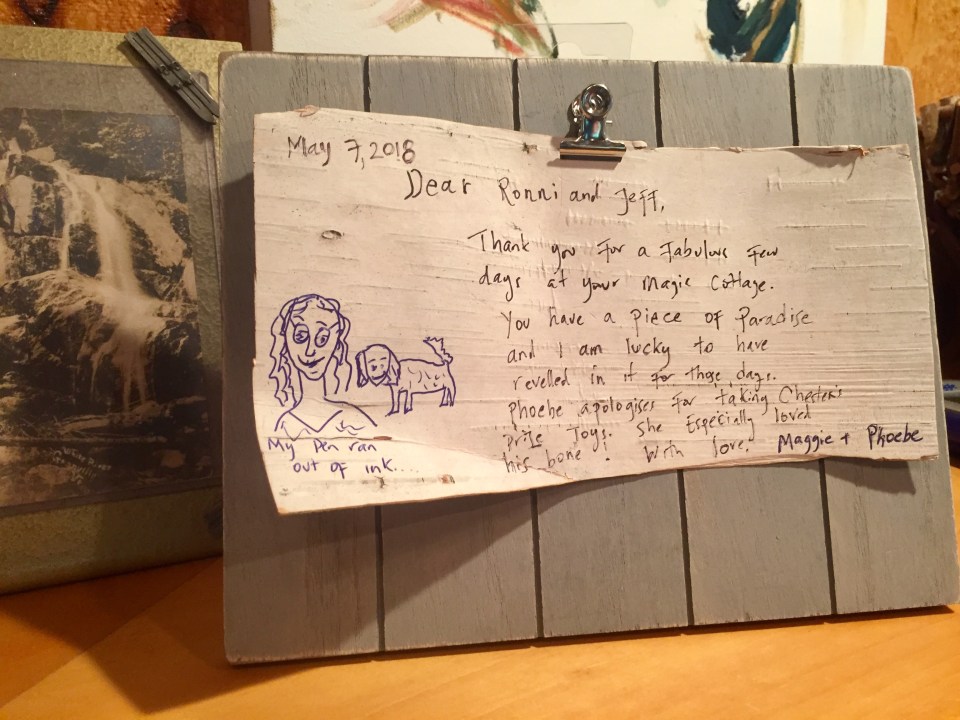 May 7, 2018
Dear Ronni and Jeff,
Thank you for a Fabulous Few
days at your magic Cottage.
You have a piece of Paradise
and I am lucky to have
revelled in it for those days.
Phoebe apologises for taking Chester's
prize Toys. She Especially loved
his bone! With love, Maggie + Phoebe
My Pen ran
out of ink....